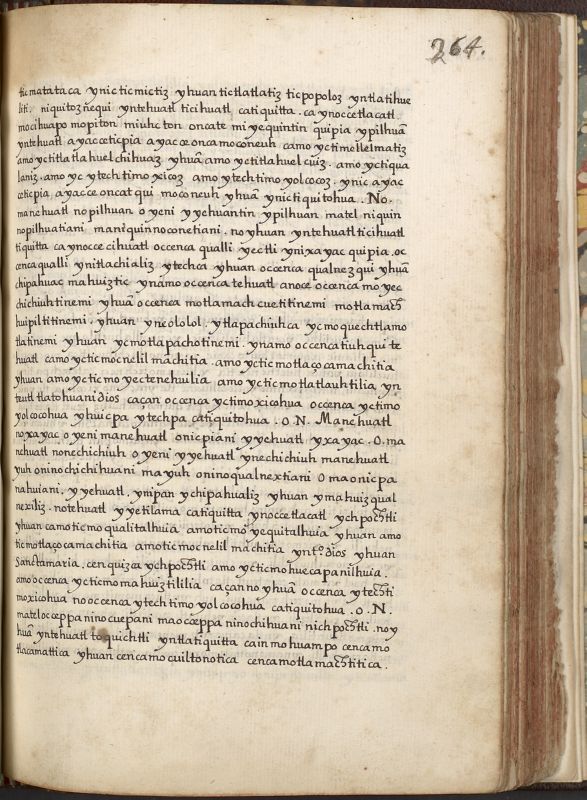 264.
tic matataca ynic tic mictiz yhuan tic tlatlatiz tic popoloz yntlatihue
liti. niquitoznequi yntehuatl ticihuatl catiquitta. ca ynoccetlacatl
mocihuapo mopiton miuhcton oncate miyequintin quipia ypilhuā
yntehuatl ayac ceticpia ayac ce oncamoconeuh camo yctimotlelmatiz
amo yctitlatlahuelchihuaz yhuā amo yctitlahuelcuiz. amo yctiqua
laniz. amo yc ytechtimoxicoz amo ytechtimoyolcocoz. ynic ayac
ceticpia ayac ce oncat qui moconeuh yhuā ynictiquitohua. No
manehuatl nopilhuan oyeni yyehuantin ypilhuan matel niquin
nopilhuatiani maniquinnoconetiani. no yhuan yntehuatl ticihuatl
tiquitta ca ynocce cihuatl occenca qualli yectli ynixayac quipia. oc
cenca qualli ynitlachializ ytechca yhuan occenca qualnezqui yhuā
chipahuac mahuiztic ynamo occenca tehuatl anoce occenca moyec
chichiuhtinemi yhuā occenca motlamachcuetitinemi motlamach
huipiltitinemi. yhuan yneololol. ytlapachiuhca ycmoquechtlamo
tlatinemi yhuan ycmotlapachotinemi. ynamo occenca tiuhqui te
huatl camo yctic mocnelilmachitia. amo yctic motlaçocamachitia
yhuan amo yctic moyectenehuilia amo yctic motlatlauhtilia yn
teutl tlatohuani dios caçan occenca yctimoxicohua occenca yctimo
yolcocohua yhuicpa ytechpa catiquitohua. O. N. Manehuatl
noxayac oyeni manehuatl onicpiani yyehuatl yxayac. O. ma
nehuatl nonechichiuh oyeni yyehuatl ynechichiuh manehuatl
yuh oninochichihuani mayuh oninoqualnextiani O maonicpa
nahuiani. yyehuatl. ynipan ychipahualiz yhuan ymahuizqual
nexiliz. notehuatl yyetilama catiquitta ynoccetlacatl ychpochtli
yhuan camoticmoqualitalhuia amoticmoyequitalhuia yhuan amo
ticmotlaçocamachitia amoticmocnelilmachitia yntº. dios yhuan
Sanctamaria. cenquizca ychpochtli amo ycticmohuecapanilhuia.
amo occenca ycticmomahuiztililia caçanno yhuā occenca ytechti
moxicohua no occenca ytechtimoyolcocohua catiquitohua. O. N.
matel occeppa ninocuepani maocceppa ninochihuani nichpochtli. no y
huā yntehuatl toquichtli yntlatiquitta cain mohuampo cencamo
tlacamattica yhuan cencamocuiltonotica cencamotlamachtitica.